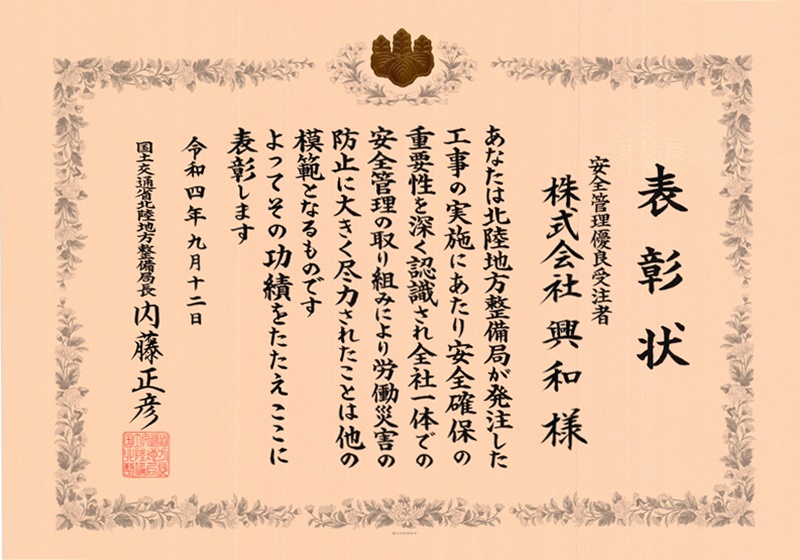 表彰状
安全管理優良受注者
株式会社 興和 様
あなたは北陸地方整備局が発注した
工事の実施にあたり安全確保の
重要性を深く認識され全社一体での
安全管理の取り組みにより労働災害の
防止に大きく尽力されたことは他の
模範となるものです
よってその功績をたたえここに
表彰します
令和四年九月十二日
国土交通省北陸地方整備局長 内藤正彦